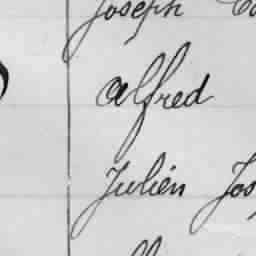 Joseph
Alfred
Julién Jos